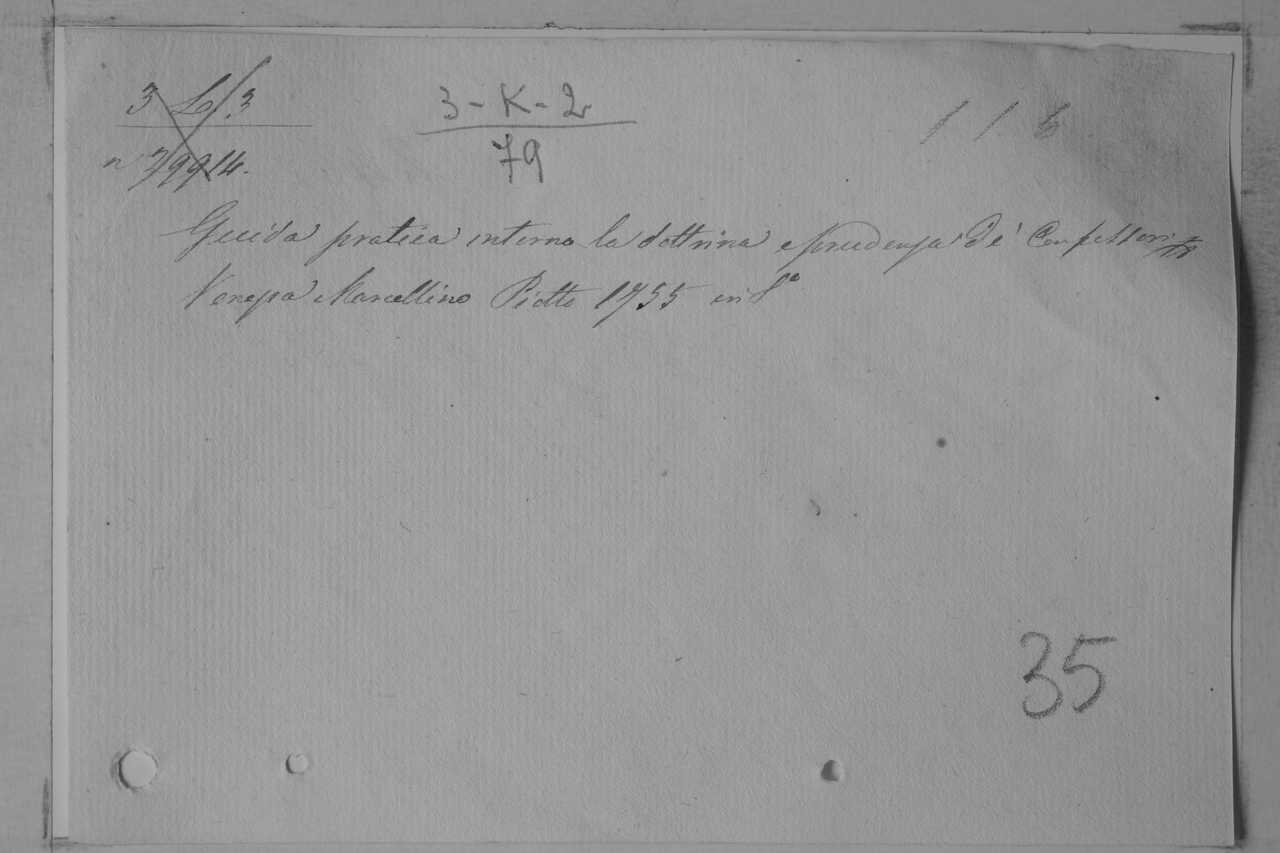 3 L 3
n 79914.
3-K-2
79
116
Guida pratica intorno la dottrina e prudenza de' Confessori
Venezia Marcellino Piotto 1755 in 8°
35